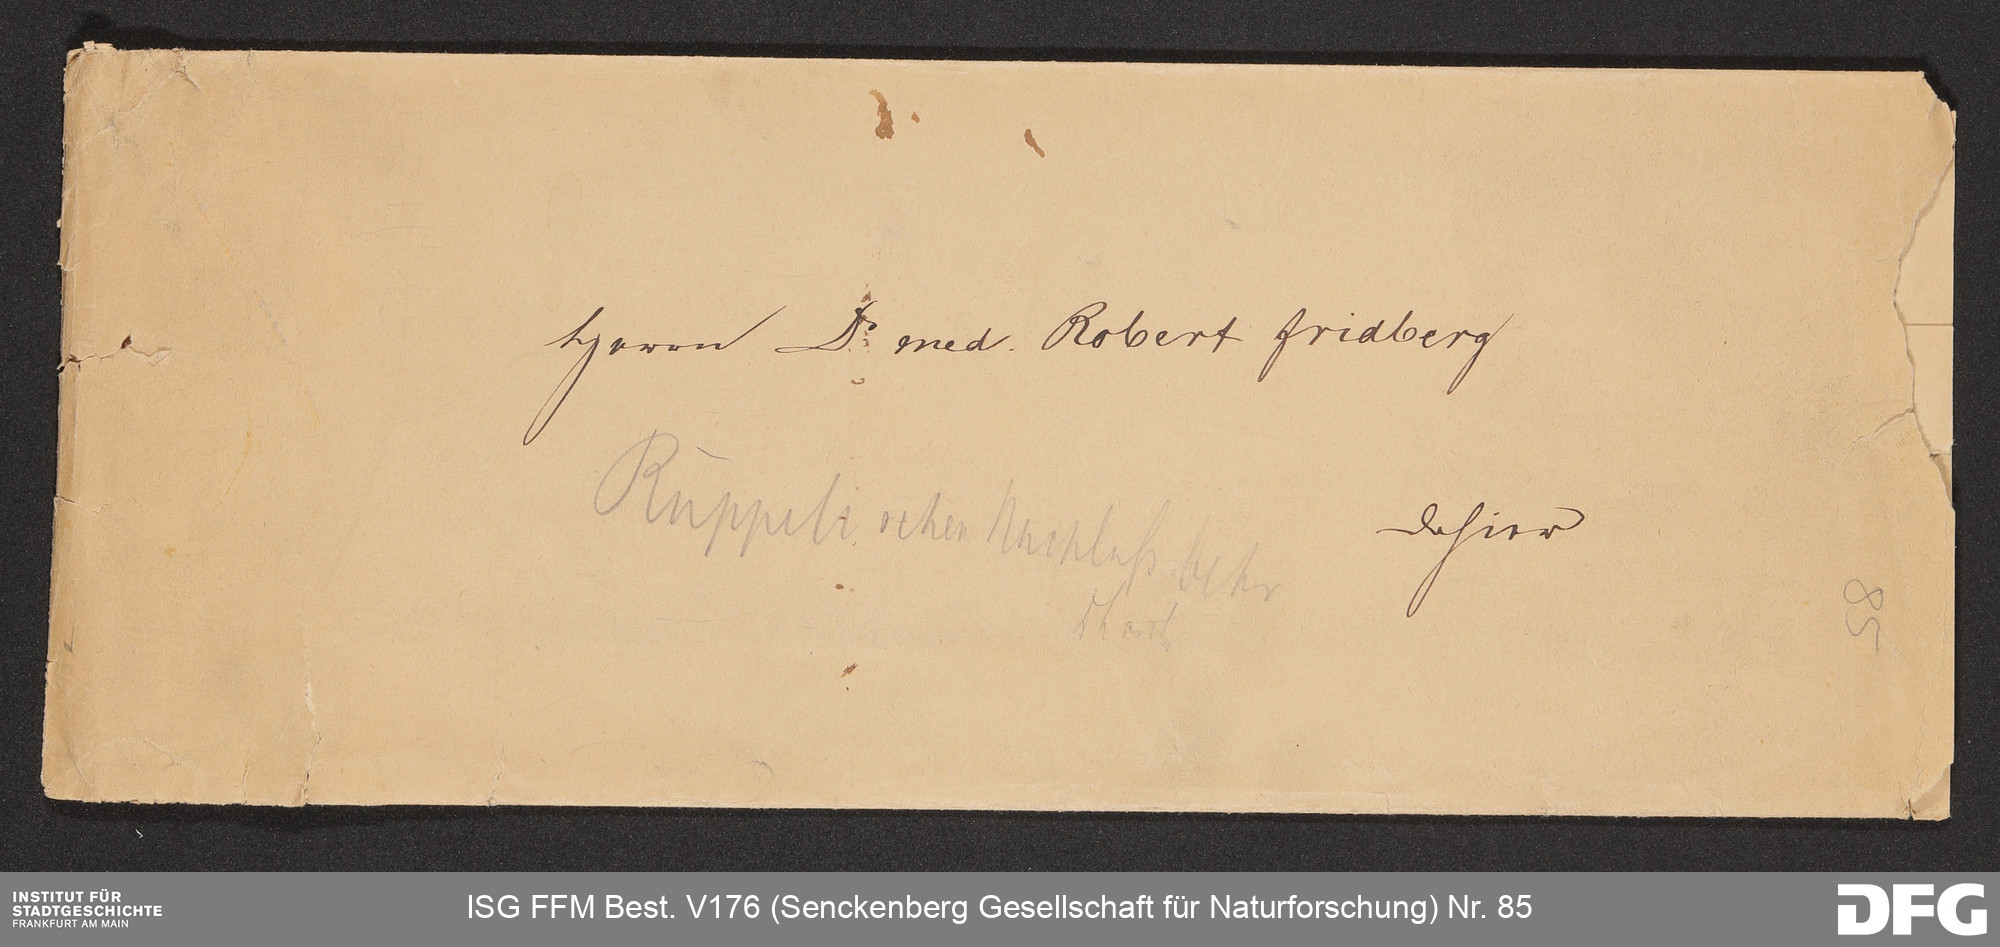 Herrn Dr. med. Robert Fridberg
Rüppell'schen Nachlaß betr
dahier
85
INSTITUT FÜR
STADTGESCHICHTE
FRANKFURT AM MAIN
ISG FFM Best. V176 (Senckenberg Gesellschaft für Naturforschung) Nr. 85
DFG